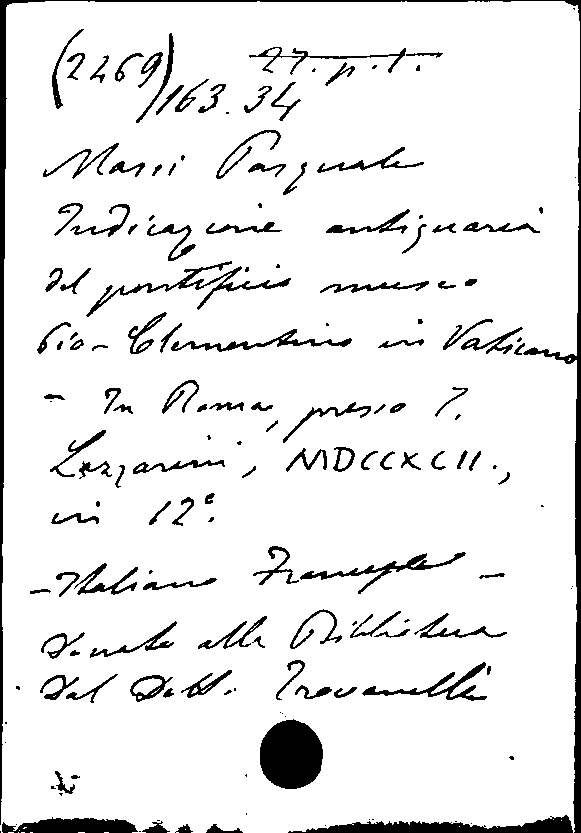 (2469) 27. p. t.
163.34
Massi Pasquale
Indicazione antiquaria
del pontificio museo
Pio-Clementino in Vaticano
- In Roma, presso I.
Lazzarini, MDCCXCII.,
in 12°.
- Italiano Francese -
Donato alla Biblioteca
dal Dott. Trovanelli